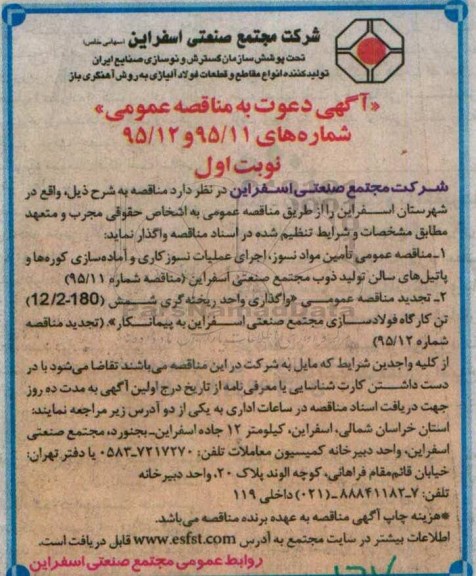 شرکت مجتمع صنعتی اسفراین (سهامی خاص)
تحت پوشش سازمان گسترش و نوسازی صنایع ایران
تولیدکننده انواع مقاطع و قطعات فولاد آلیاژی به روش آهنگری باز
«آگهی دعوت به مناقصه عمومی»
شماره‌های ۹۵/۱۱ و ۹۵/۱۲
نوبت اول
شرکت مجتمع صنعتی اسفراین در نظر دارد مناقصه به شرح ذیل، واقع در
شهرستان اسفراین را از طریق مناقصه عمومی به اشخاص حقوقی مجرب و متعهد
مطابق مشخصات و شرایط تنظیم شده در اسناد مناقصه واگذار نماید:
۱-مناقصه عمومی تأمین مواد نسوز، اجرای عملیات نسوزکاری و آماده‌سازی کوره‌ها و
پاتیل‌های سالن تولید ذوب مجتمع صنعتی اسفراین (مناقصه شماره ۹۵/۱۱)
۲- تجدید مناقصه عمومی «واگذاری واحد ریخته‌گری شمش (180-12/2)
تن کارگاه فولادسازی مجتمع صنعتی اسفراین به پیمانکار». (تجدید مناقصه
شماره ۹۵/۱۲)
از کلیه واجدین شرایط که مایل به شرکت در این مناقصه می‌باشند تقاضا می‌شود با در
دست داشتن کارت شناسایی یا معرفی‌نامه از تاریخ درج اولین آگهی به مدت ده روز
جهت دریافت اسناد مناقصه در ساعات اداری به یکی از دو آدرس زیر مراجعه نمایند:
استان خراسان شمالی، اسفراین، کیلومتر ۱۲ جاده اسفراین-بجنورد، مجتمع صنعتی
اسفراین، واحد دبیرخانه کمیسیون معاملات تلفن: ۷۲۱۷۲۷۰-۰۵۸۳ یا دفتر تهران:
خیابان قائم‌مقام فراهانی، کوچه الوند پلاک ۲۰، واحد دبیرخانه
تلفن: ۷-۸۸۸۴۱۱۸۲ (۰۲۱) داخلی ۱۱۹
*هزینه چاپ آگهی مناقصه به عهده برنده مناقصه می‌باشد.
اطلاعات بیشتر در سایت مجتمع به آدرس www.esfst.com قابل دریافت است.
روابط عمومی مجتمع صنعتی اسفراین